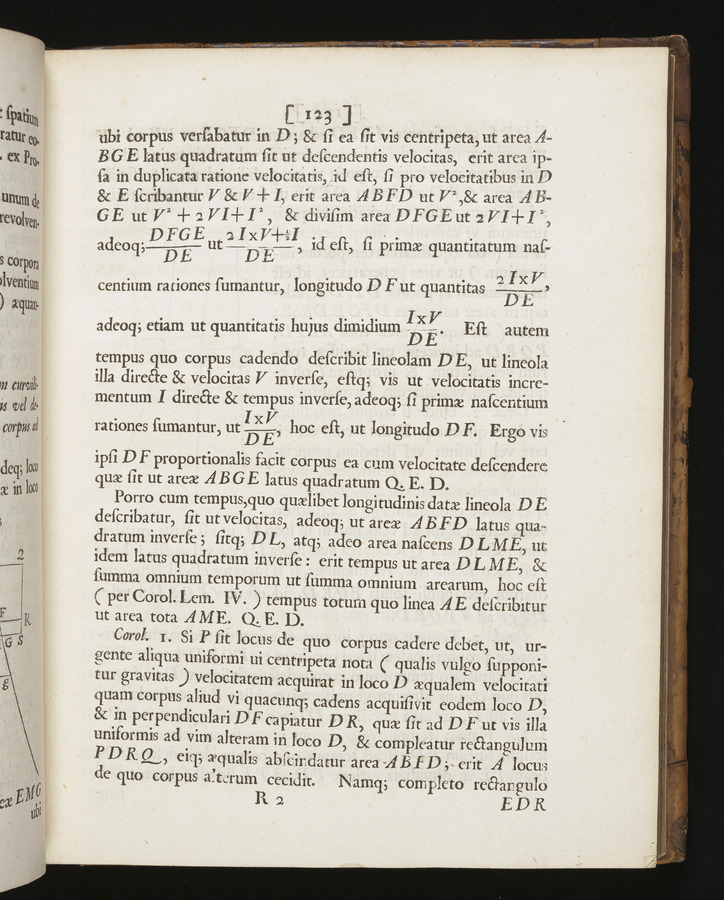 [ 123 ]
ubi corpus verſabatur in D; & ſi ea ſit vis centripeta, ut area A-
BGE latus quadratum ſit ut deſcendentis velocitas, erit area ip-
ſa in duplicata ratione velocitatis, id eſt, ſi pro velocitatibus in D
& E ſcribantur V & V + I, erit area ABFD ut V², & area AB-
GE ut V² + 2VI + I², & diviſim area DFGE ut 2VI + I²,
adeoq; DFGE/DE ut 2I x V + ½I/DE, id eſt, ſi primæ quantitatum naſ-
centium rationes ſumantur, longitudo DF ut quantitas 2I x V/DE,
adeoq; etiam ut quantitatis hujus dimidium I x V/DE. Eſt autem
tempus quo corpus cadendo deſcribit lineolam DE, ut lineola
illa directe & velocitas V inverſe, eſtq; vis ut velocitatis incre-
mentum I directe & tempus inverſe, adeoq; ſi primæ naſcentium
rationes ſumantur, ut I x V/DE, hoc eſt, ut longitudo DF. Ergo vis
ipſi DF proportionalis facit corpus ea cum velocitate deſcendere
quæ ſit ut areæ ABGE latus quadratum Q. E. D.
Porro cum tempus, quo quælibet longitudinis datæ lineola DE
deſcribatur, ſit ut velocitas, adeoq; ut areæ ABFD latus qua-
dratum inverſe; ſitq; DL, atq; adeo area naſcens DLME, ut
idem latus quadratum inverſe: erit tempus ut area DLME, &
ſumma omnium temporum ut ſumma omnium arearum, hoc eſt
( per Corol. Lem. IV. ) tempus totum quo linea AE deſcribitur
ut area tota AME. Q. E. D.
Corol. 1. Si P ſit locus de quo corpus cadere debet, ut, ur-
gente aliqua uniformi vi centripeta nota ( qualis vulgo ſupponi-
tur gravitas ) velocitatem acquirat in loco D æqualem velocitati
quam corpus aliud vi quacunq; cadens acquiſivit eodem loco D,
& in perpendiculari DF capiatur DR, quæ ſit ad DF ut vis illa
uniformis ad vim alteram in loco D, & compleatur rectangulum
PDRQ, eiq; æqualis abſcindatur area ABFD; erit A locus
de quo corpus alterum cecidit. Namq; completo rectangulo
R 2
EDR
ſpatium
ratur eo-
ex Pro-
unum de
revolven-
corpora
olventium
) æquan-
curvili-
is vel de-
corpus ad
deq; loco
æ in loco
2
F
R
G S
g
eæ EMG
ubi